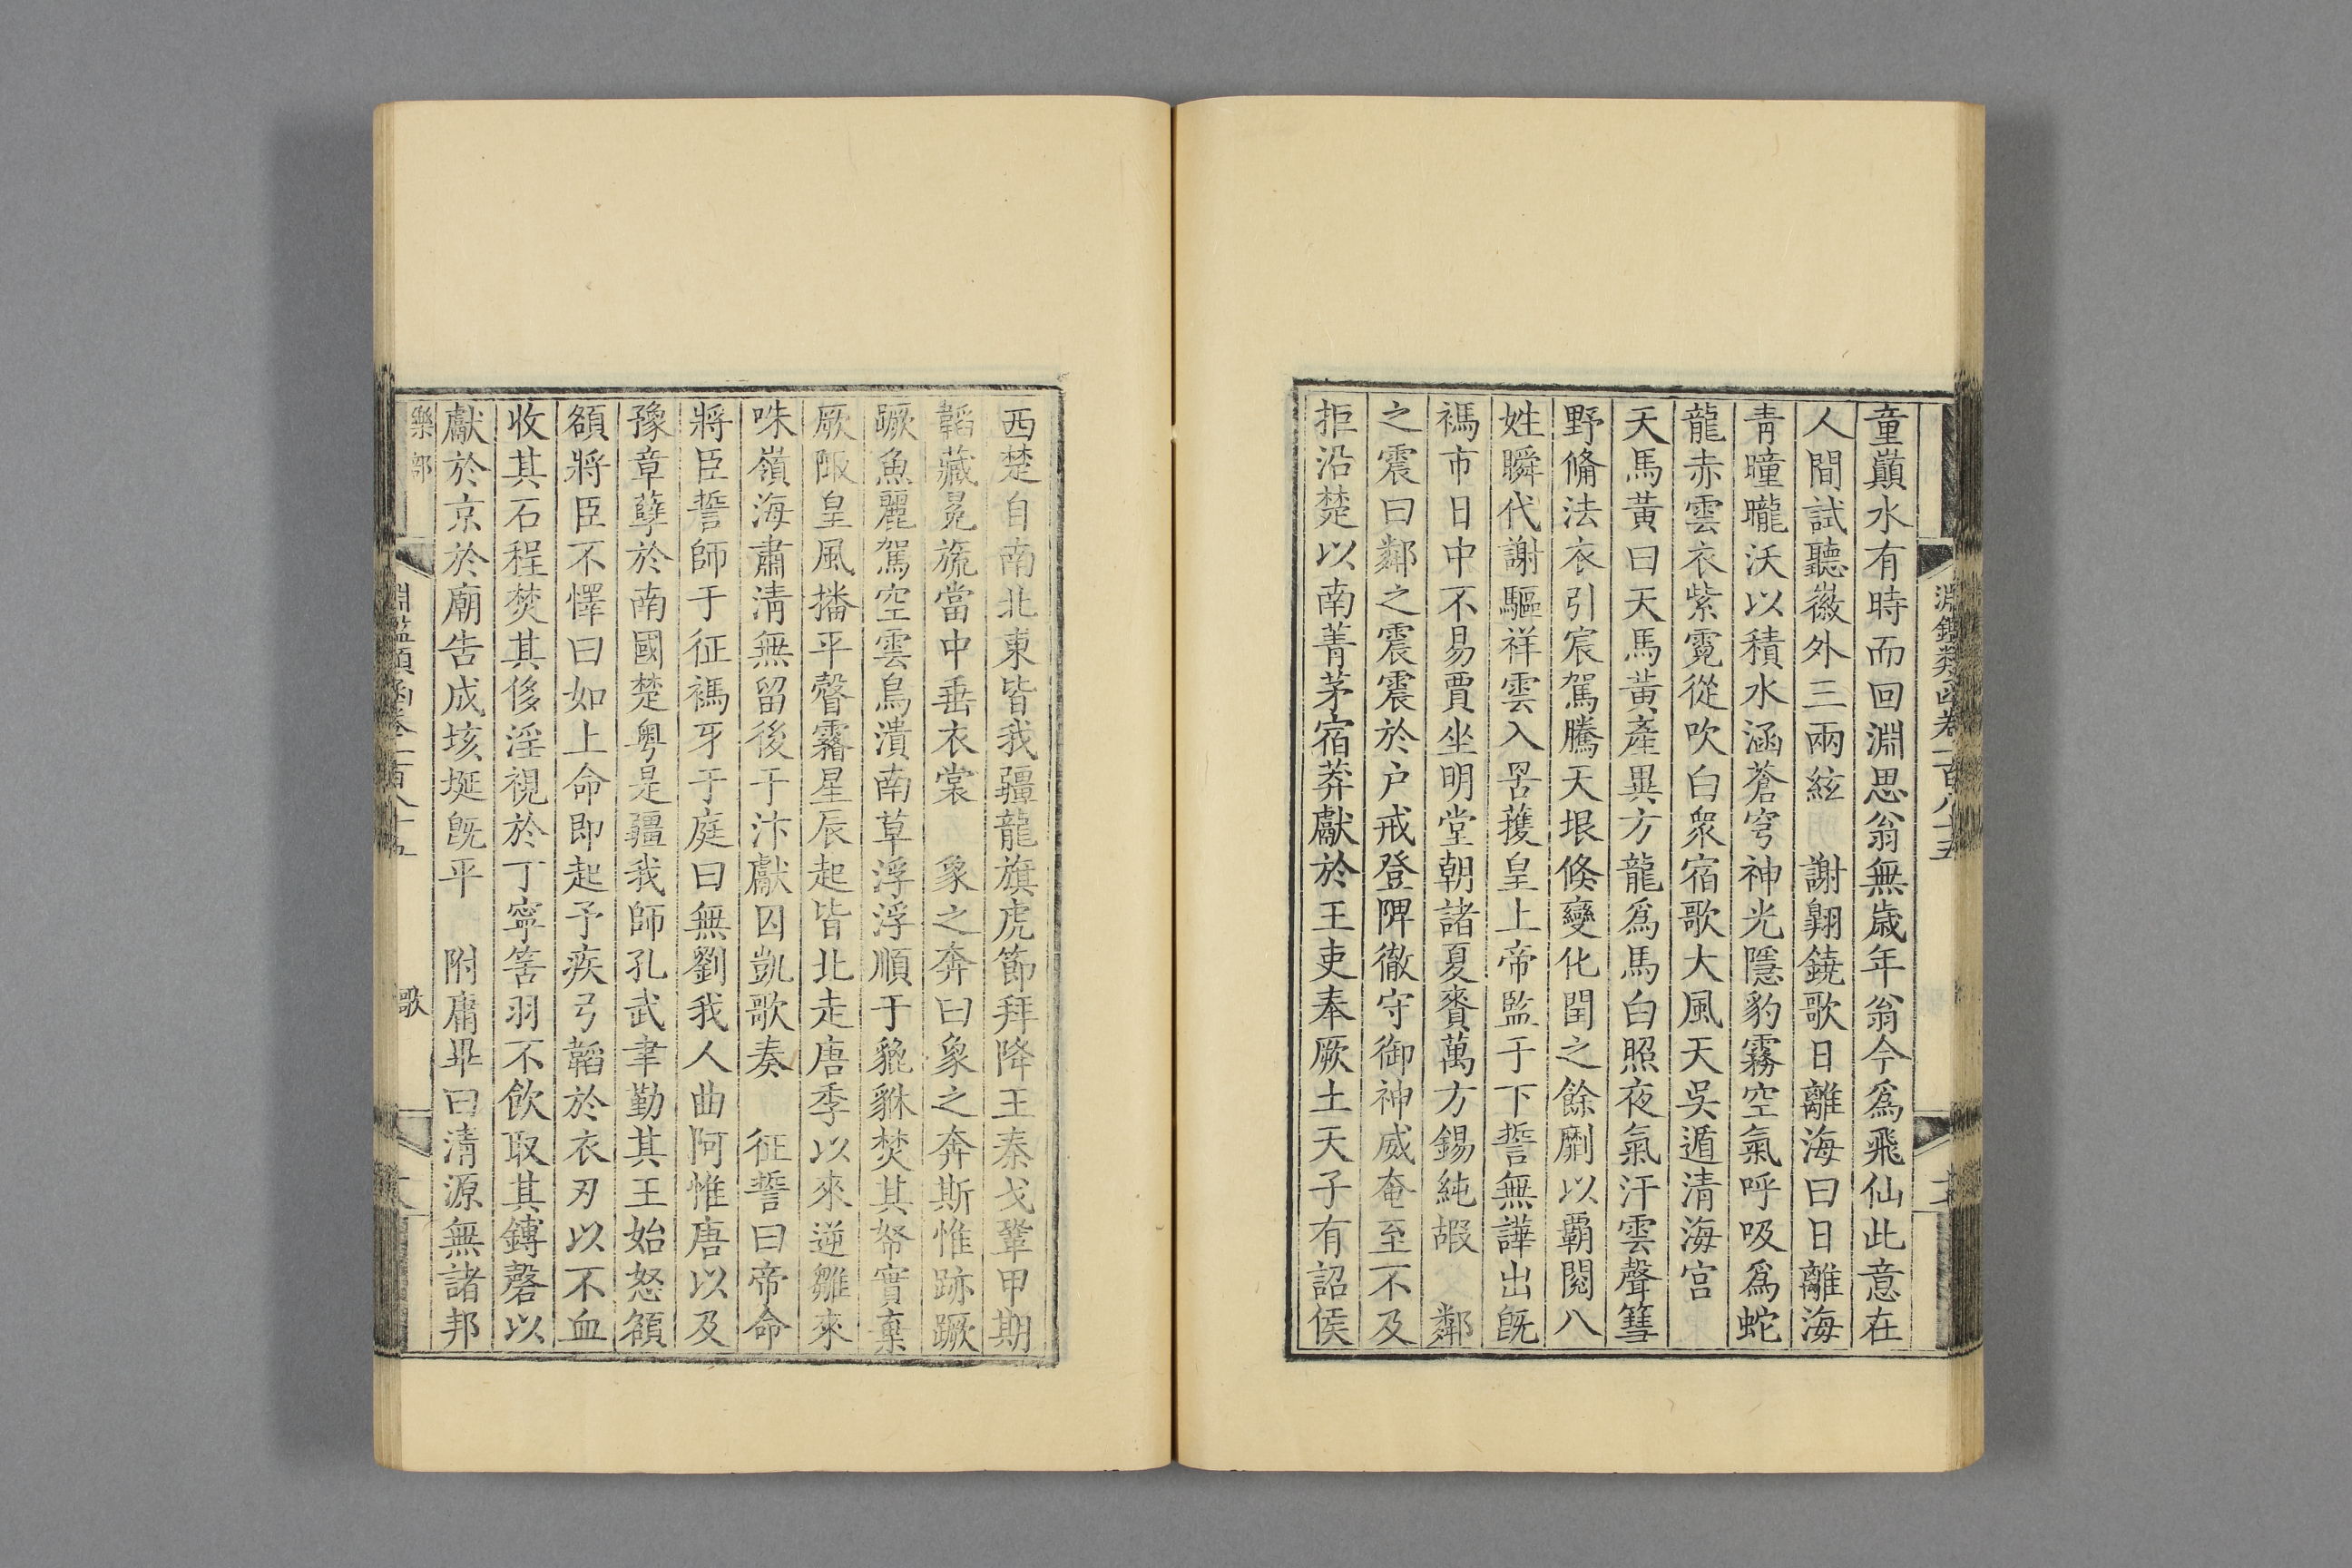 淵鑑類函卷一百八十五
童巔水有時而回淵思翁無歳年翁今爲飛仙此意在
人間試聽徽外三兩絃 謝翺鐃歌日離海曰日離海
青曈曨沃以積水涵蒼穹神光隱豹霧空氣呼吸爲蛇
龍赤雲衣紫霓從吹白衆宿歌大風天吳遁清海宫
天馬黃曰天馬黃產異方龍爲馬白照夜氣汗雲聲篲
野脩法衣引宸駕騰天垠倏變化閏之餘劘以覇閱八
姓瞬代謝驅祥雲入罟擭皇上帝監于下誓無譁出旣
禡市日中不易賈坐明堂朝諸夏賚萬方錫純嘏 鄰
之震曰鄰之震震於户戒登陴徹守御神威奄至不及
拒沿楚以南菁茅宿莽獻於王吏奉厥土天子有詔侯
西楚自南北東皆我疆龍旗虎節拜降王秦戈鞏甲期
韜藏冕旒當中垂衣裳 象之奔曰象之奔斯惟跡蹶
蹶魚麗駕空雲鳥潰南草浮浮順于貔貅焚其帑實棄
厥陬皇風播平聲霱星辰起皆北走唐季以來逆雛來
咮嶺海肅淸無留後于汴獻囚凱歌奏 征誓曰帝命
將臣誓師于征禡牙于庭曰無劉我人曲阿惟唐以及
豫章孽於南國楚粵是疆我師孔武聿勤其王始怒額
額將臣不懌曰如上命即起予疾弓韜於衣刃以不血
收其石程焚其侈淫視於丁寧筈羽不飲取其鏄磬以
獻於京於廟告成垓埏旣平 附庸畢曰清源無諸邦
樂部 歌